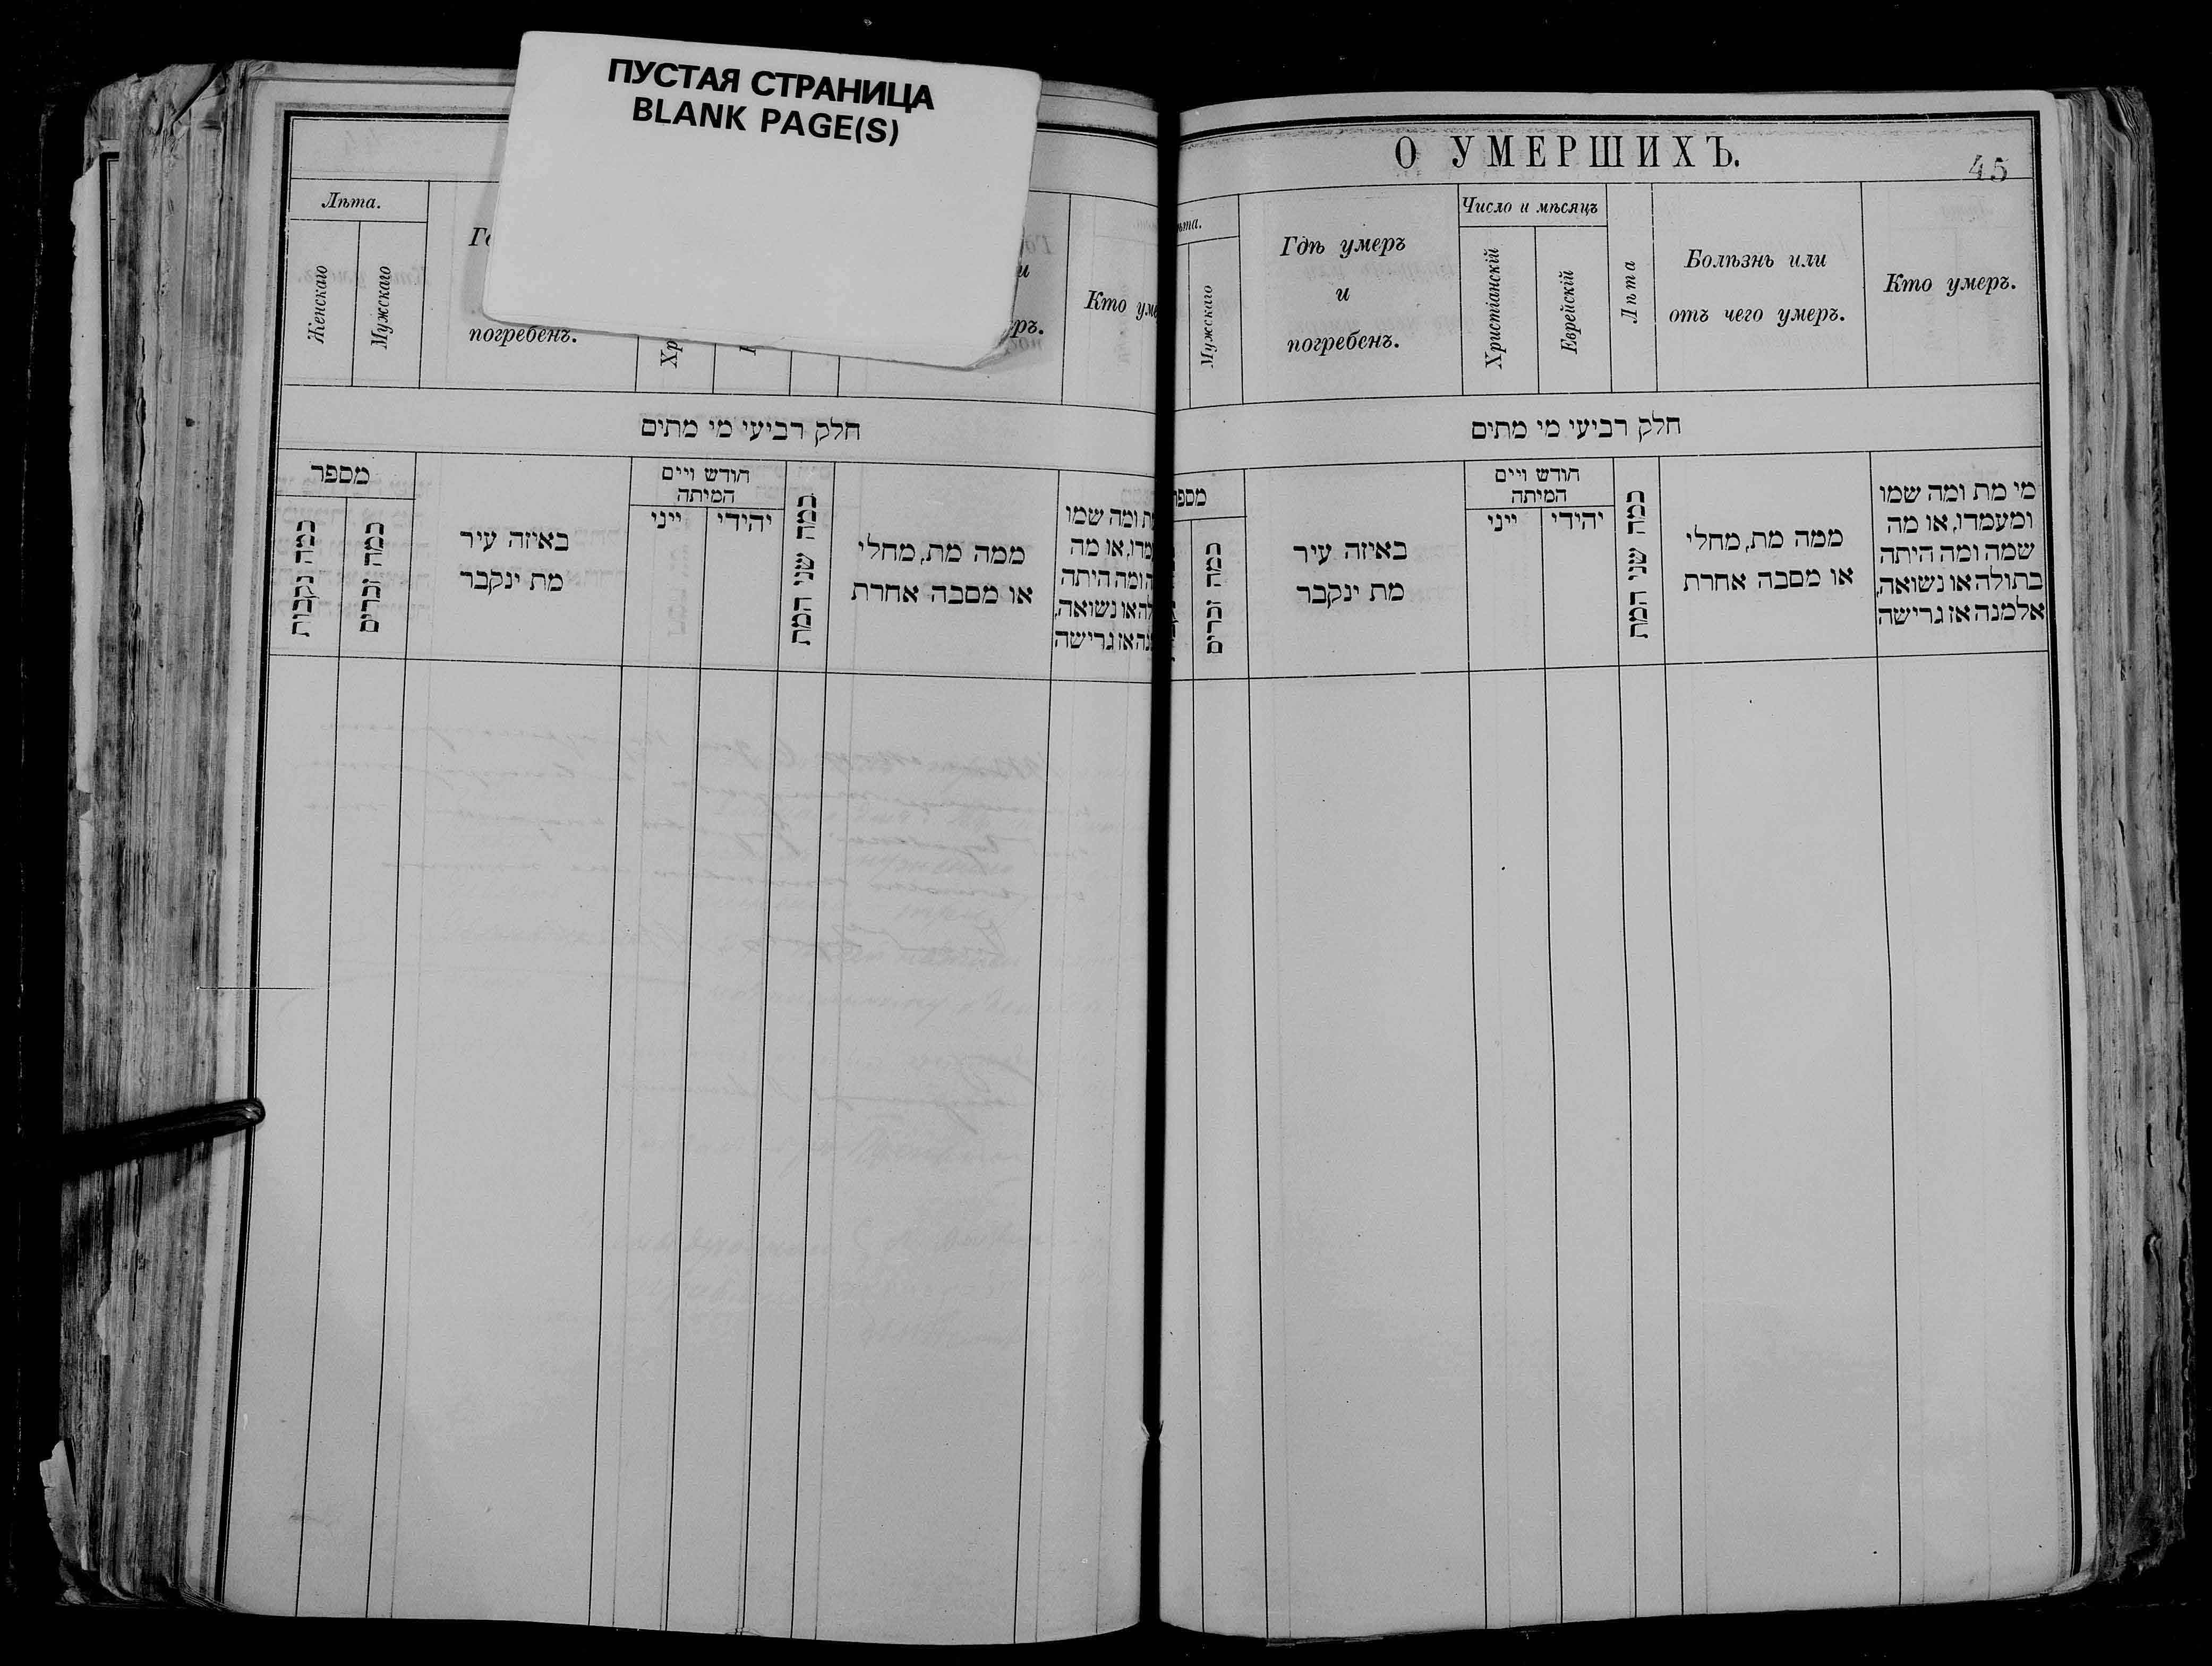 ПУСТАЯ СТРАНИЦА
BLANK PAGE(S)
Лѣта.
Женскаго
Мужскаго
погребенъ.
Хр
и
ръ.
Кто уме
חלק רביעי מי מתים
מספר
כמה נקבות
כמה זכרים
באיזה עיר
מת ינקבר
חודש ויים
המיתה
ייני
יהידי
כמה שני המת
ממה מת, מחלי
או מסבה אחרת
ת ומה שמו
מדו, או מה
ה ומה היתה
לה או נשואה,
נה אז גרישה
О УМЕРШИХЪ.
45
ѣта.
Мужскаго
Гдѣ умеръ
и
погребенъ.
Число и мѣсяцъ
Христіанскій
Еврейскій
Лѣта
Болѣзнь или
отъ чего умеръ.
Кто умеръ.
חלק רביעי מי מתים
מספר
כמה זכרים
באיזה עיר
מת ינקבר
חודש ויים
המיתה
ייני
יהידי
כמה שני המת
ממה מת, מחלי
או מסבה אחרת
מי מת ומה שמו
ומעמדו, או מה
שמה ומה היתה
בתולה או נשואה,
אלמנה אז גרישה